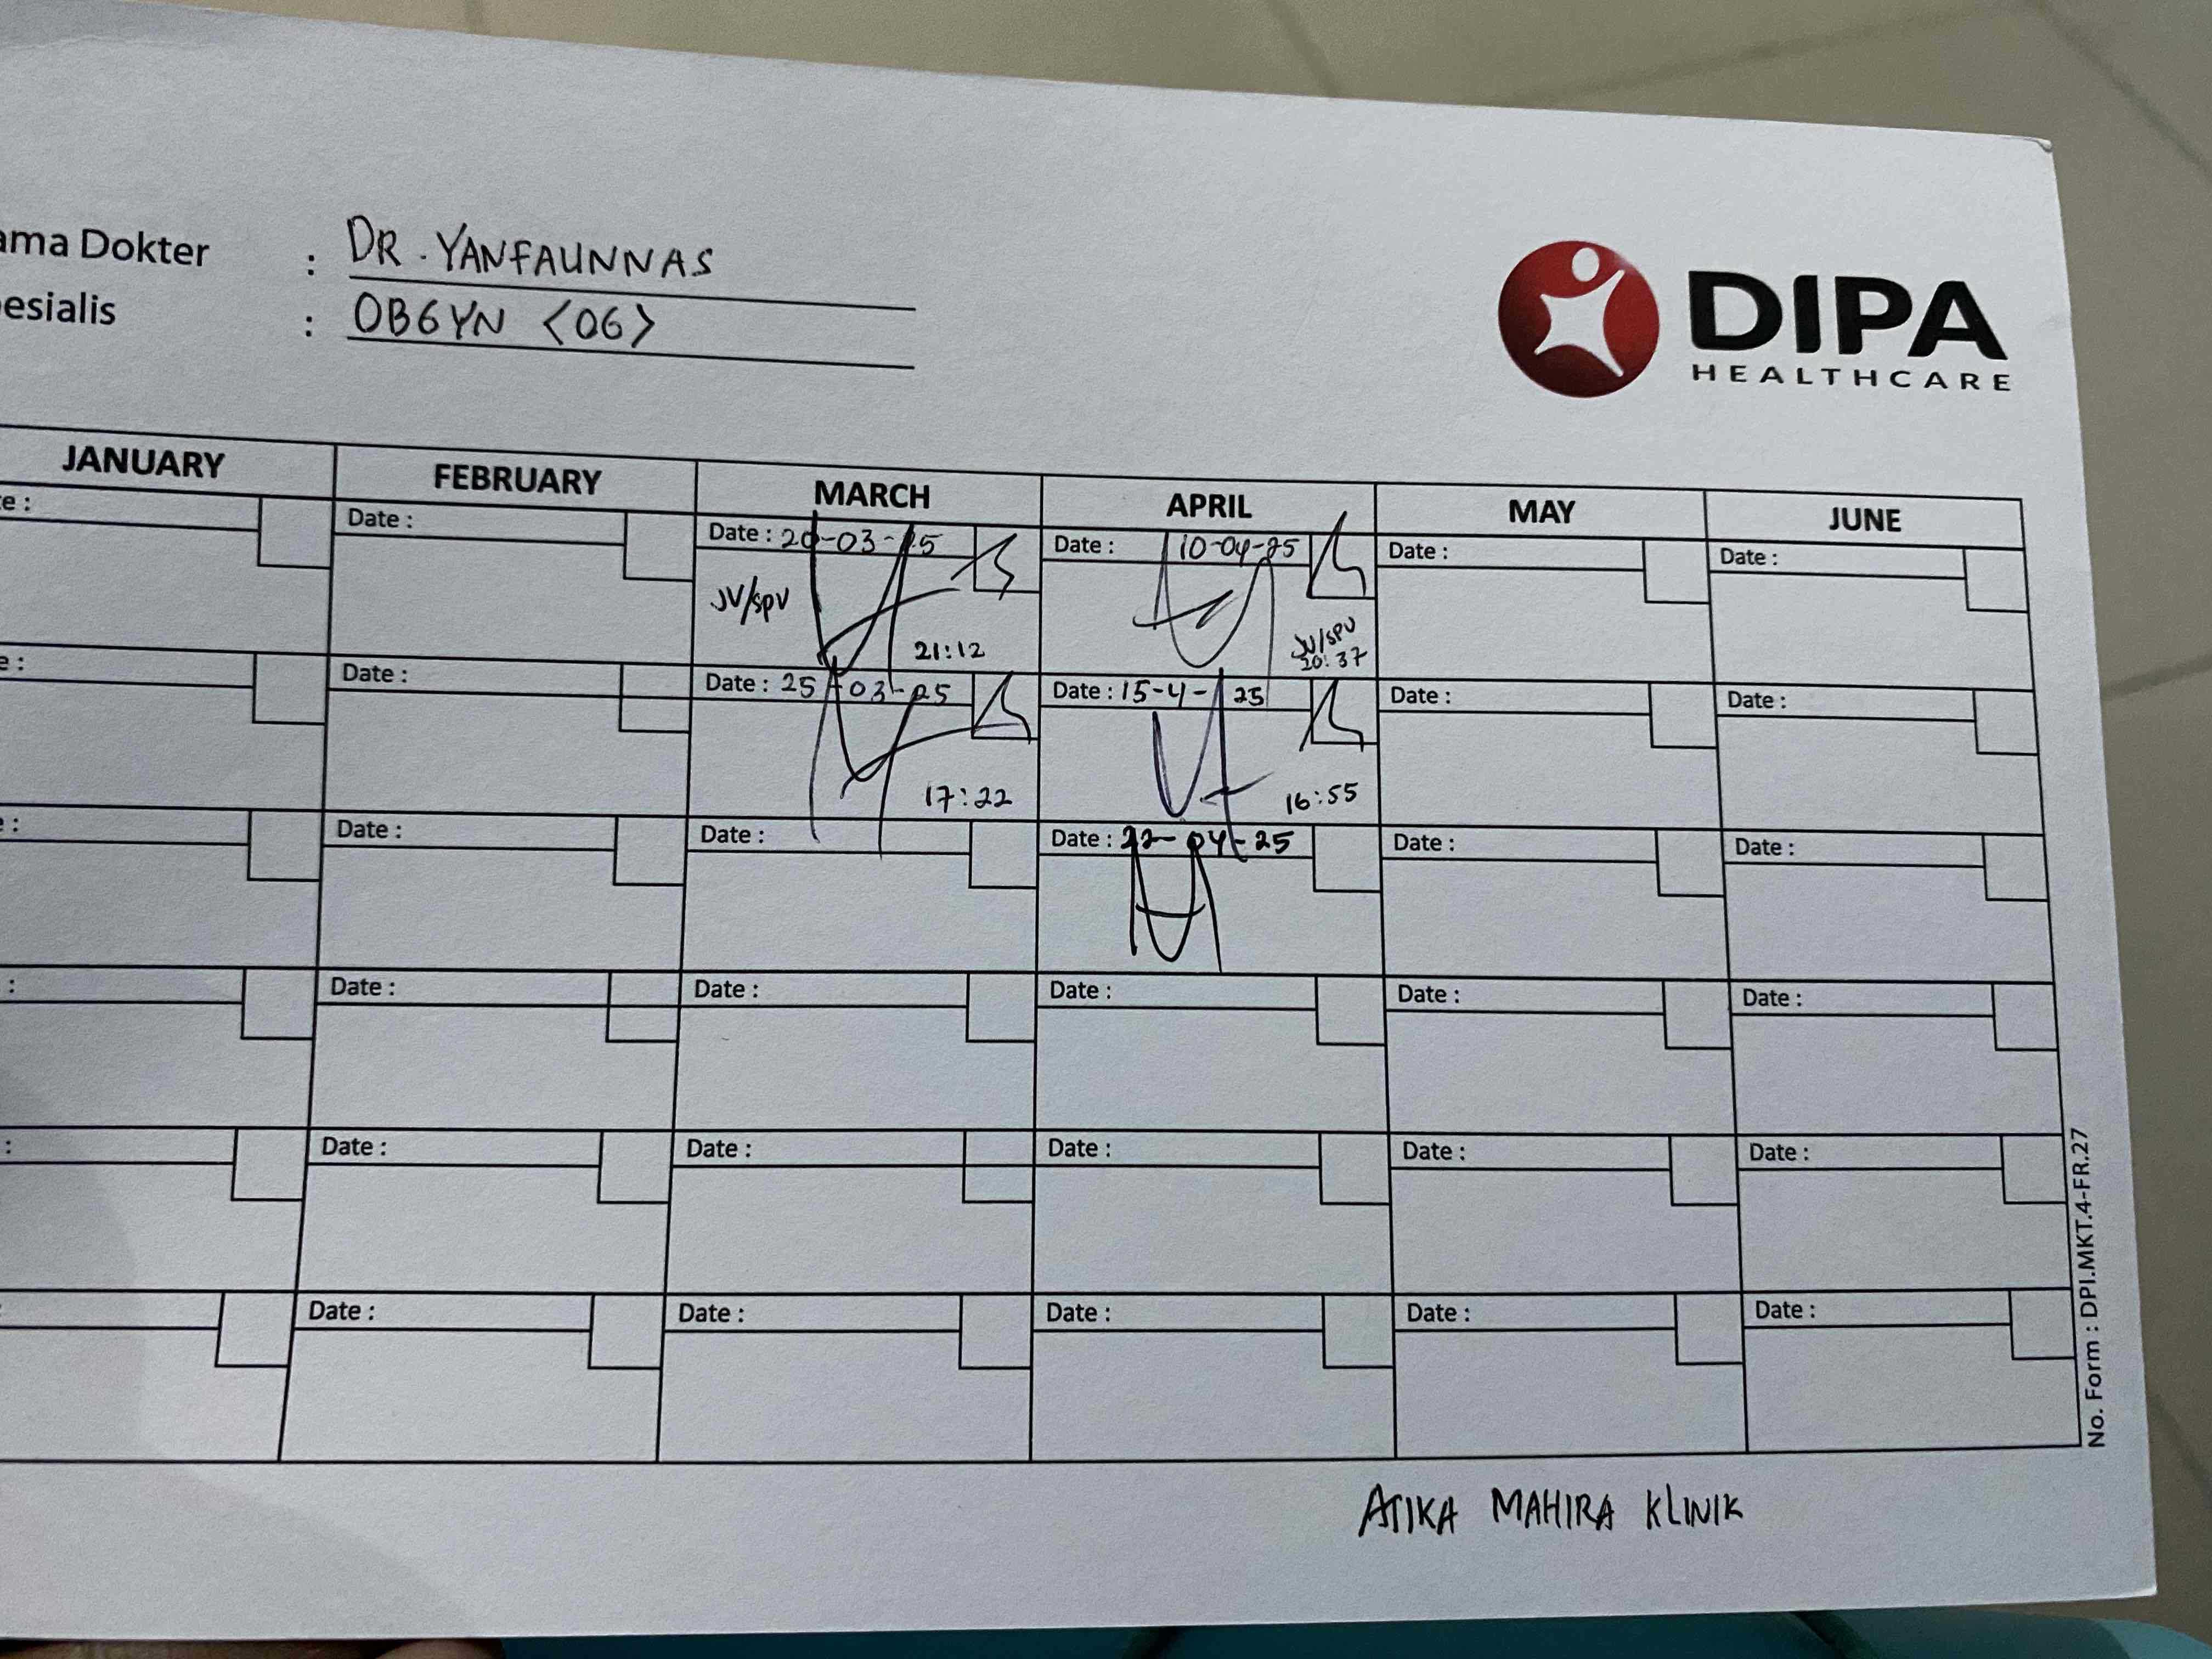 ama Dokter : DR. YANFAUNNAS
esialis : OBGYN <OG>
DIPA
HEALTHCARE
JANUARY FEBRUARY MARCH APRIL MAY JUNE
e : Date : Date : 20-03-25 Date : 10-04-25 Date : Date :
JV/SPV
21:12 JV/SPV
20:37
e : Date : Date : 25-03-25 Date : 15-4-25 Date : Date :
17:22 16:55
e : Date : Date : Date : 22-04-25 Date : Date :
: Date : Date : Date : Date : Date :
: Date : Date : Date : Date : Date :
Date : Date : Date : Date : Date :
No. Form : DPI.MKT.4-FR.27
ATIKA MAHIRA KLINIK